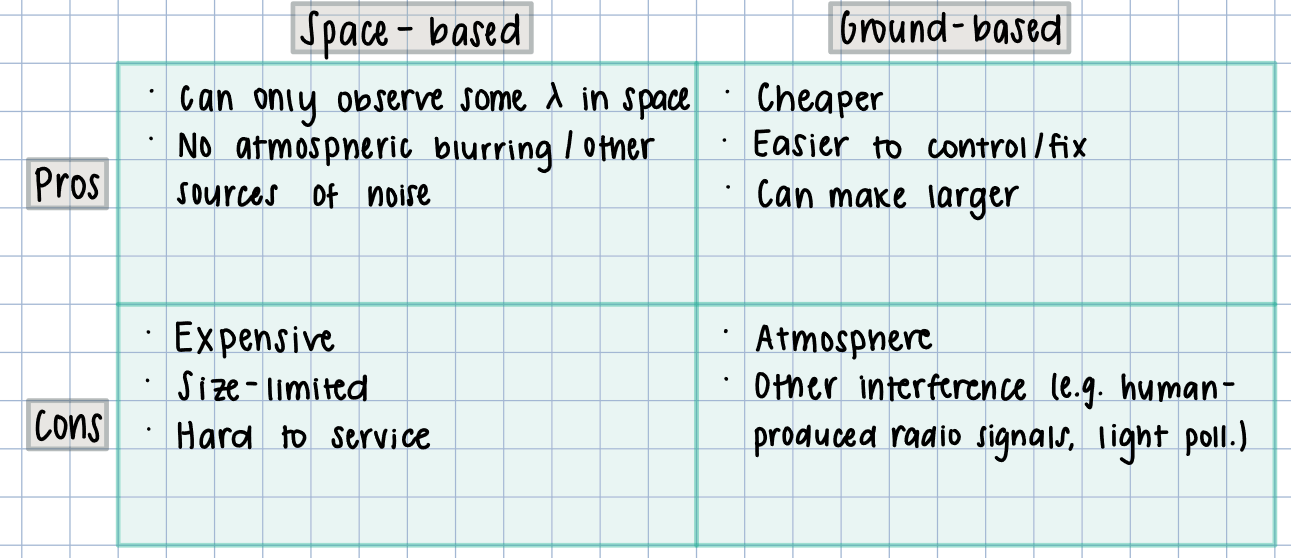 Space-based
Ground-based
Pros
· Can only observe some λ in space
· No atmospheric blurring/other
sources of noise
· Cheaper
· Easier to control/fix
· Can make larger
Cons
· Expensive
· Size-limited
· Hard to service
· Atmosphere
· Other interference (e.g. human-
produced radio signals, light poll.)